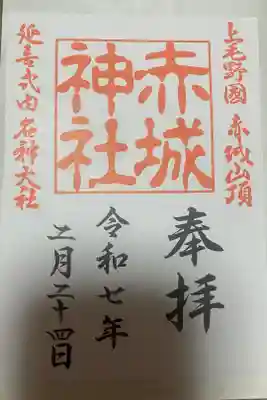 上毛野國 赤城山頂
赤城
神社
延喜式内 名神大社
奉拝
令和七年
二月二十四日